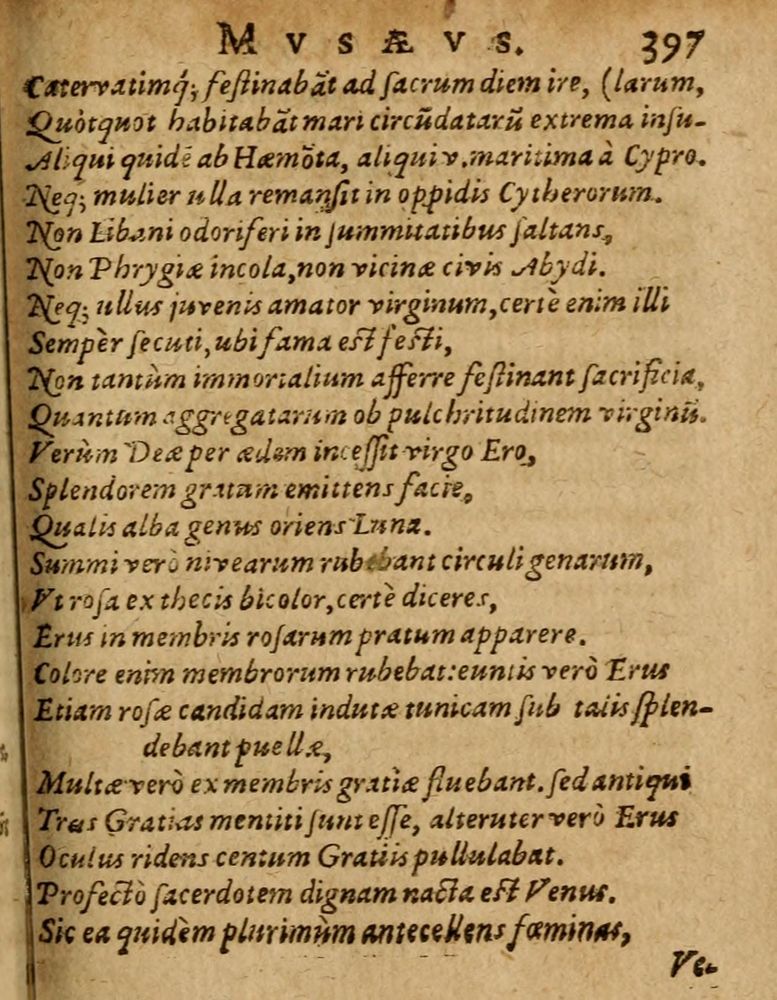 MVSÆVS. 397
Catervatimq́; feſtinabāt ad ſacrum diem ire, (larum,
Quòtquot habitabāt mari circūdatarū extrema inſu-
Aliqui quidē ab Hæmōta, aliqui v. maritima à Cypro.
Neq; mulier ulla remanſit in oppidis Cytherorum.
Non Libani odoriferi in ſummitatibus ſaltans,
Non Phrygiæ incola, non vicinæ civis Abydi.
Neq; ullus juvenis amator virginum, certè enim illi
Sempèr ſecuti, ubi fama eſt feſti,
Non tantùm immortalium afferre feſtinant ſacrificia,
Quantum aggregatarum ob pulchritudinem virginū.
Verùm Deæ per ædem inceſſit virgo Ero,
Splendorem gratum emittens facie,
Qualis alba genus oriens Luna.
Summi verò nivearum rubebant circuli genarum,
Vt roſa ex thecis bicolor, certè diceres,
Erus in membris roſarum pratum apparere.
Colore enim membrorum rubebat: euntis verò Erus
Etiam roſæ candidam indutæ tunicam ſub talis ſplen-
debant puellæ,
Multæ verò ex membris gratiæ fluebant. ſed antiqui
Tres Gratias mentiti ſunt eſſe, alteruter verò Erus
Oculus ridens centum Gratiis pullulabat.
Profectò ſacerdotem dignam nacta eſt Venus.
Sic ea quidèm plurimùm antecellens fœminas,
Ve-